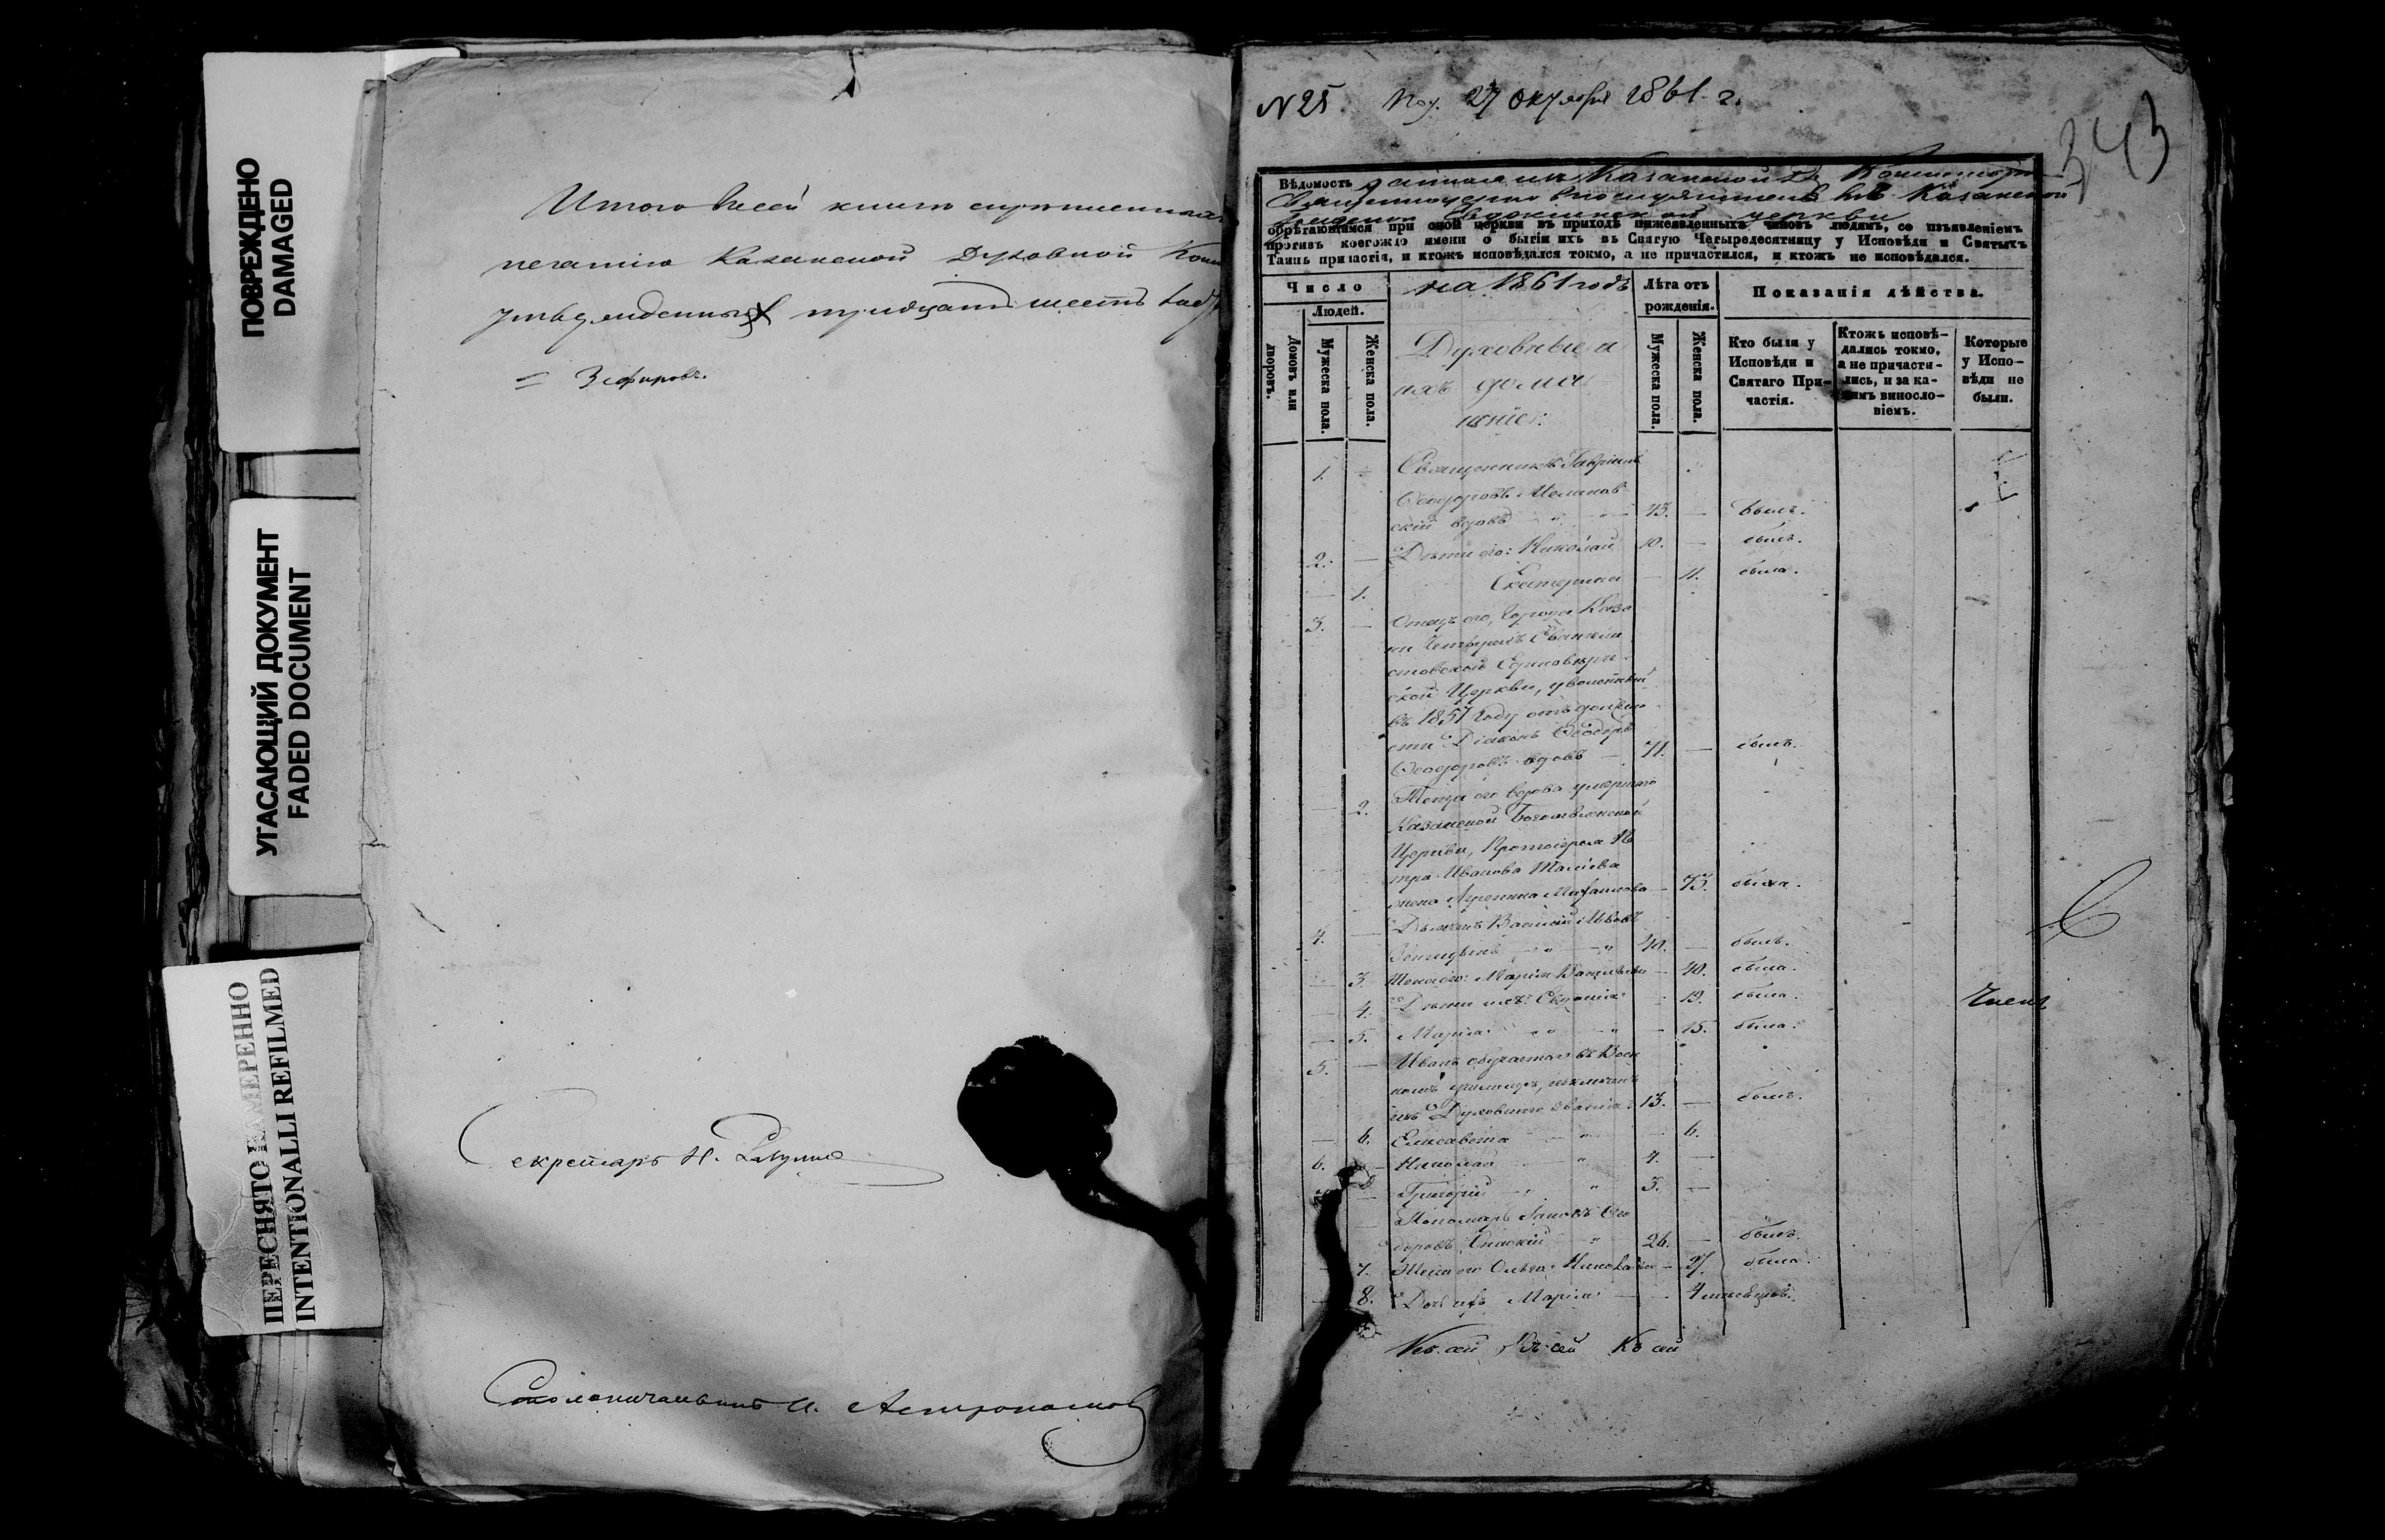 ПОВРЕЖДЕНО
DAMAGED
УГАСАЮЩИЙ ДОКУМЕНТ
FADED DOCUMENT
ПЕРЕСНЯТО НАМЕРЕННО
INTENTIONALLI REFILMED
Итого въ сей книге скрепленныхъ
печатию Казанской Духовной Кон
утвержденныхъ тридцать шесть
= Зефировъ.
Секретарь Н.
Столоначальникъ И. Астрономовъ
N 25. Пол. 27 Октября 1861 г.
343
Вѣдомость данная изъ Казанской Д. Консисторіи
Священноцерковнослужителей въ Казанской
Грузинской Евдокіинской церкви
обрѣтающимся при оной церкви въ приходѣ нижеявленныхъ чиновъ людямъ, со изъявленіемъ
противъ коегождо имени о бытіи ихъ въ Святую Четыредесятницу у Исповѣди и Святыхъ
Таинъ причастія, и ктожъ исповѣдался токмо, а не причастился, и ктожъ не исповѣдался.
Число
на 1861 годъ
Лѣта отъ рожденія.
Показанія дѣйства.
Людей.
Домовъ или дворовъ.
Мужеска пола.
Женска пола.
Духовные и
ихъ дома
шніе:
Мужеска пола.
Женска пола.
Кто были у Исповѣди и Святаго Причастія.
Ктожъ исповѣдались токмо, а не причастились, и за какимъ винословіемъ.
Которые у Исповѣди не были.
1. Священникъ Гавріилъ
Ѳеодоровъ
скій вдовъ 43. — былъ.
2. — Дѣти его: Николай 10. — былъ.
— 1. Екатерина — 11. была.
3. — Отецъ его, города Каза
ни Четырехъ Евангели
стовской Единовѣрче
ской Церкви, уволенный
въ 1857 году отъ должно
сти Діаконъ Ѳеодоръ
Ѳеодоровъ вдовъ — 71. — былъ.
— 2. Теща его вдова умершаго
Казанской Богоявленской
Церкви, Протоіерея Пе
тра Иванова Таліева
жена Агрепина Михайлова — 73. была.
4. — Діаконъ Василій Львовъ
40. — былъ.
— 3. Жена его: Марія Васильева — 40. была.
— 4. Дѣти ихъ: — 19. была.
Членъ
— 5. Марія — 15. была.
5. — Иванъ обучается въ Воен
номъ училищѣ, исключенъ
изъ Духовнаго званія 13. — былъ.
— 6. Елисавета — 6.
6. — Николай 4. —
— Григорій 3. —
— Пономарь Іаковъ Ѳео
доровъ Спаскій 26. — былъ.
— 7. Жена его Ольга Николаева — 21. была.
— 8. Дочь ихъ Марія — 4 мѣсяцовъ.
Къ сей Къ сей Къ сей